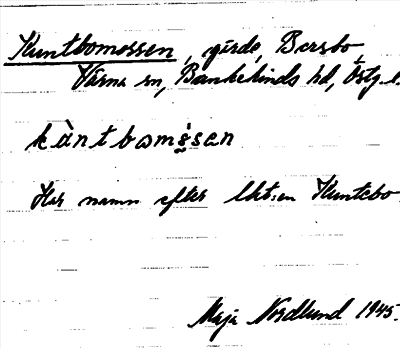 Kuntbomossen, gärde, Bersbo
Värna sn, Bankekinds hd, Östg. l.
kàntbomssen
Har namn efter lht:en Kuntebo.
Maja Nordlund 1945.